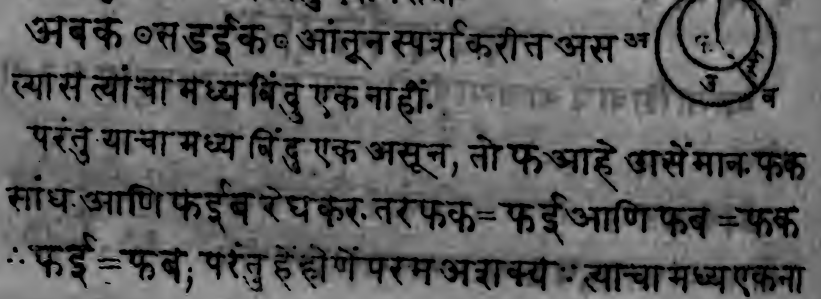 अबक ०सडईक० आंतून स्पर्श करीत अस
ल्यास त्यांचा मध्य बिंदु एक नाहीं.
परंतु याचा मध्य बिंदु एक असून, तो फ आहे असें मान. फक
सांध. आणि फईब रेघ कर. तर फक = फई आणि फब = फक
∴ फई = फब; परंतु हें होणें परम अशक्य ∵ त्याचा मध्य एक ना
अ
उ
ब